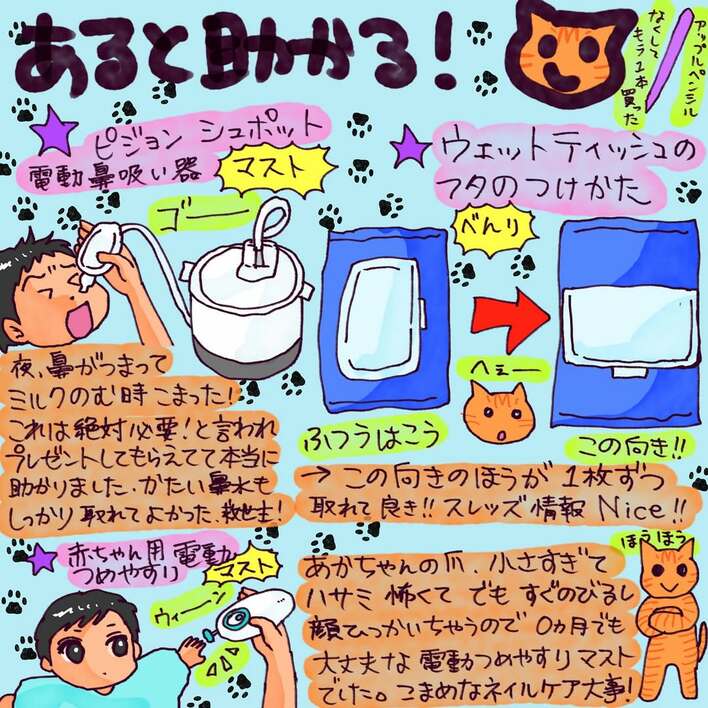 あると助かる!
アップルペンシル
なくして
もう1本
買った
ピジョン シュポット
電動鼻吸い器
マスト
ゴー
ウェットティッシュの
フタのつけかた
べんり
へぇー
ふつうはこう
この向き!!
夜、鼻がつまって
ミルクのむ時こまった!
これは絶対必要!と言われ
プレゼントしてもらえてて本当に
助かりました。かたい鼻水も
しっかり取れてよかった。救世主!
→この向きのほうが1枚ずつ
取れて良き!!スレッズ情報Nice!!
赤ちゃん用電動
つめやすり
マスト
ウィーン
あかちゃんの爪、小さすぎて
ハサミ怖くて でも すぐのびるし
顔ひっかいちゃうので 0ヵ月でも
大丈夫な電動つめやすりマスト
でした。こまめなネイルケア大事!
ほうほう